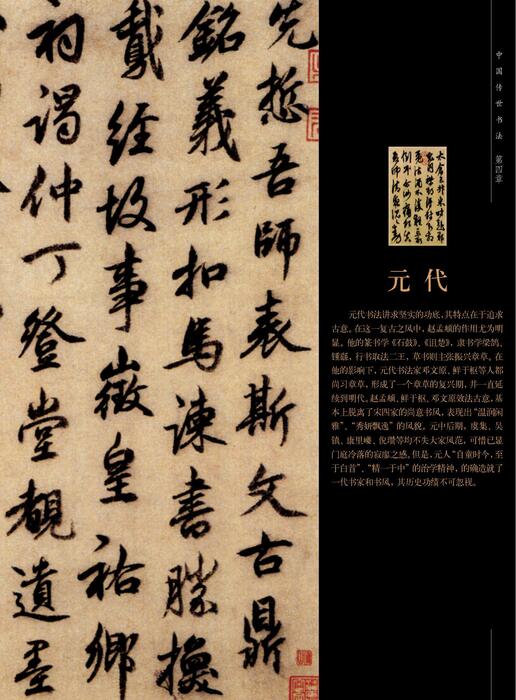 先悊吾師表斯文古鼎
銘義形扣馬諫書勝換
戴經故事徵皇祐鄉
祠謁仲丁登堂覩遺墨
中国传世书法 第四章
元代
元代书法讲求坚实的功底，其特点在于追求
古意。在这一复古之风中，赵孟頫的作用尤为明
显。他的篆书学《石鼓》、《诅楚》，隶书学梁鹄、
锺繇，行书取法二王，草书则主张振兴章草。在
他的影响下，元代书法家邓文原、鲜于枢等人都
尚习章草，形成了一个章草的复兴期，并一直延
续到明代。赵孟頫、鲜于枢、邓文原效法古意，基
本上脱离了宋四家的尚意书风，表现出“温润闲
雅”、“秀妍飘逸”的风貌。元中后期，虞集、吴
镇、康里巎、倪瓒等均不失大家风范，可惜已显
门庭冷落的寂寥之感。但是，元人“自童时今，至
于白首”、“精一于中”的治学精神，的确造就了
一代书家和书风，其历史功绩不可忽视。